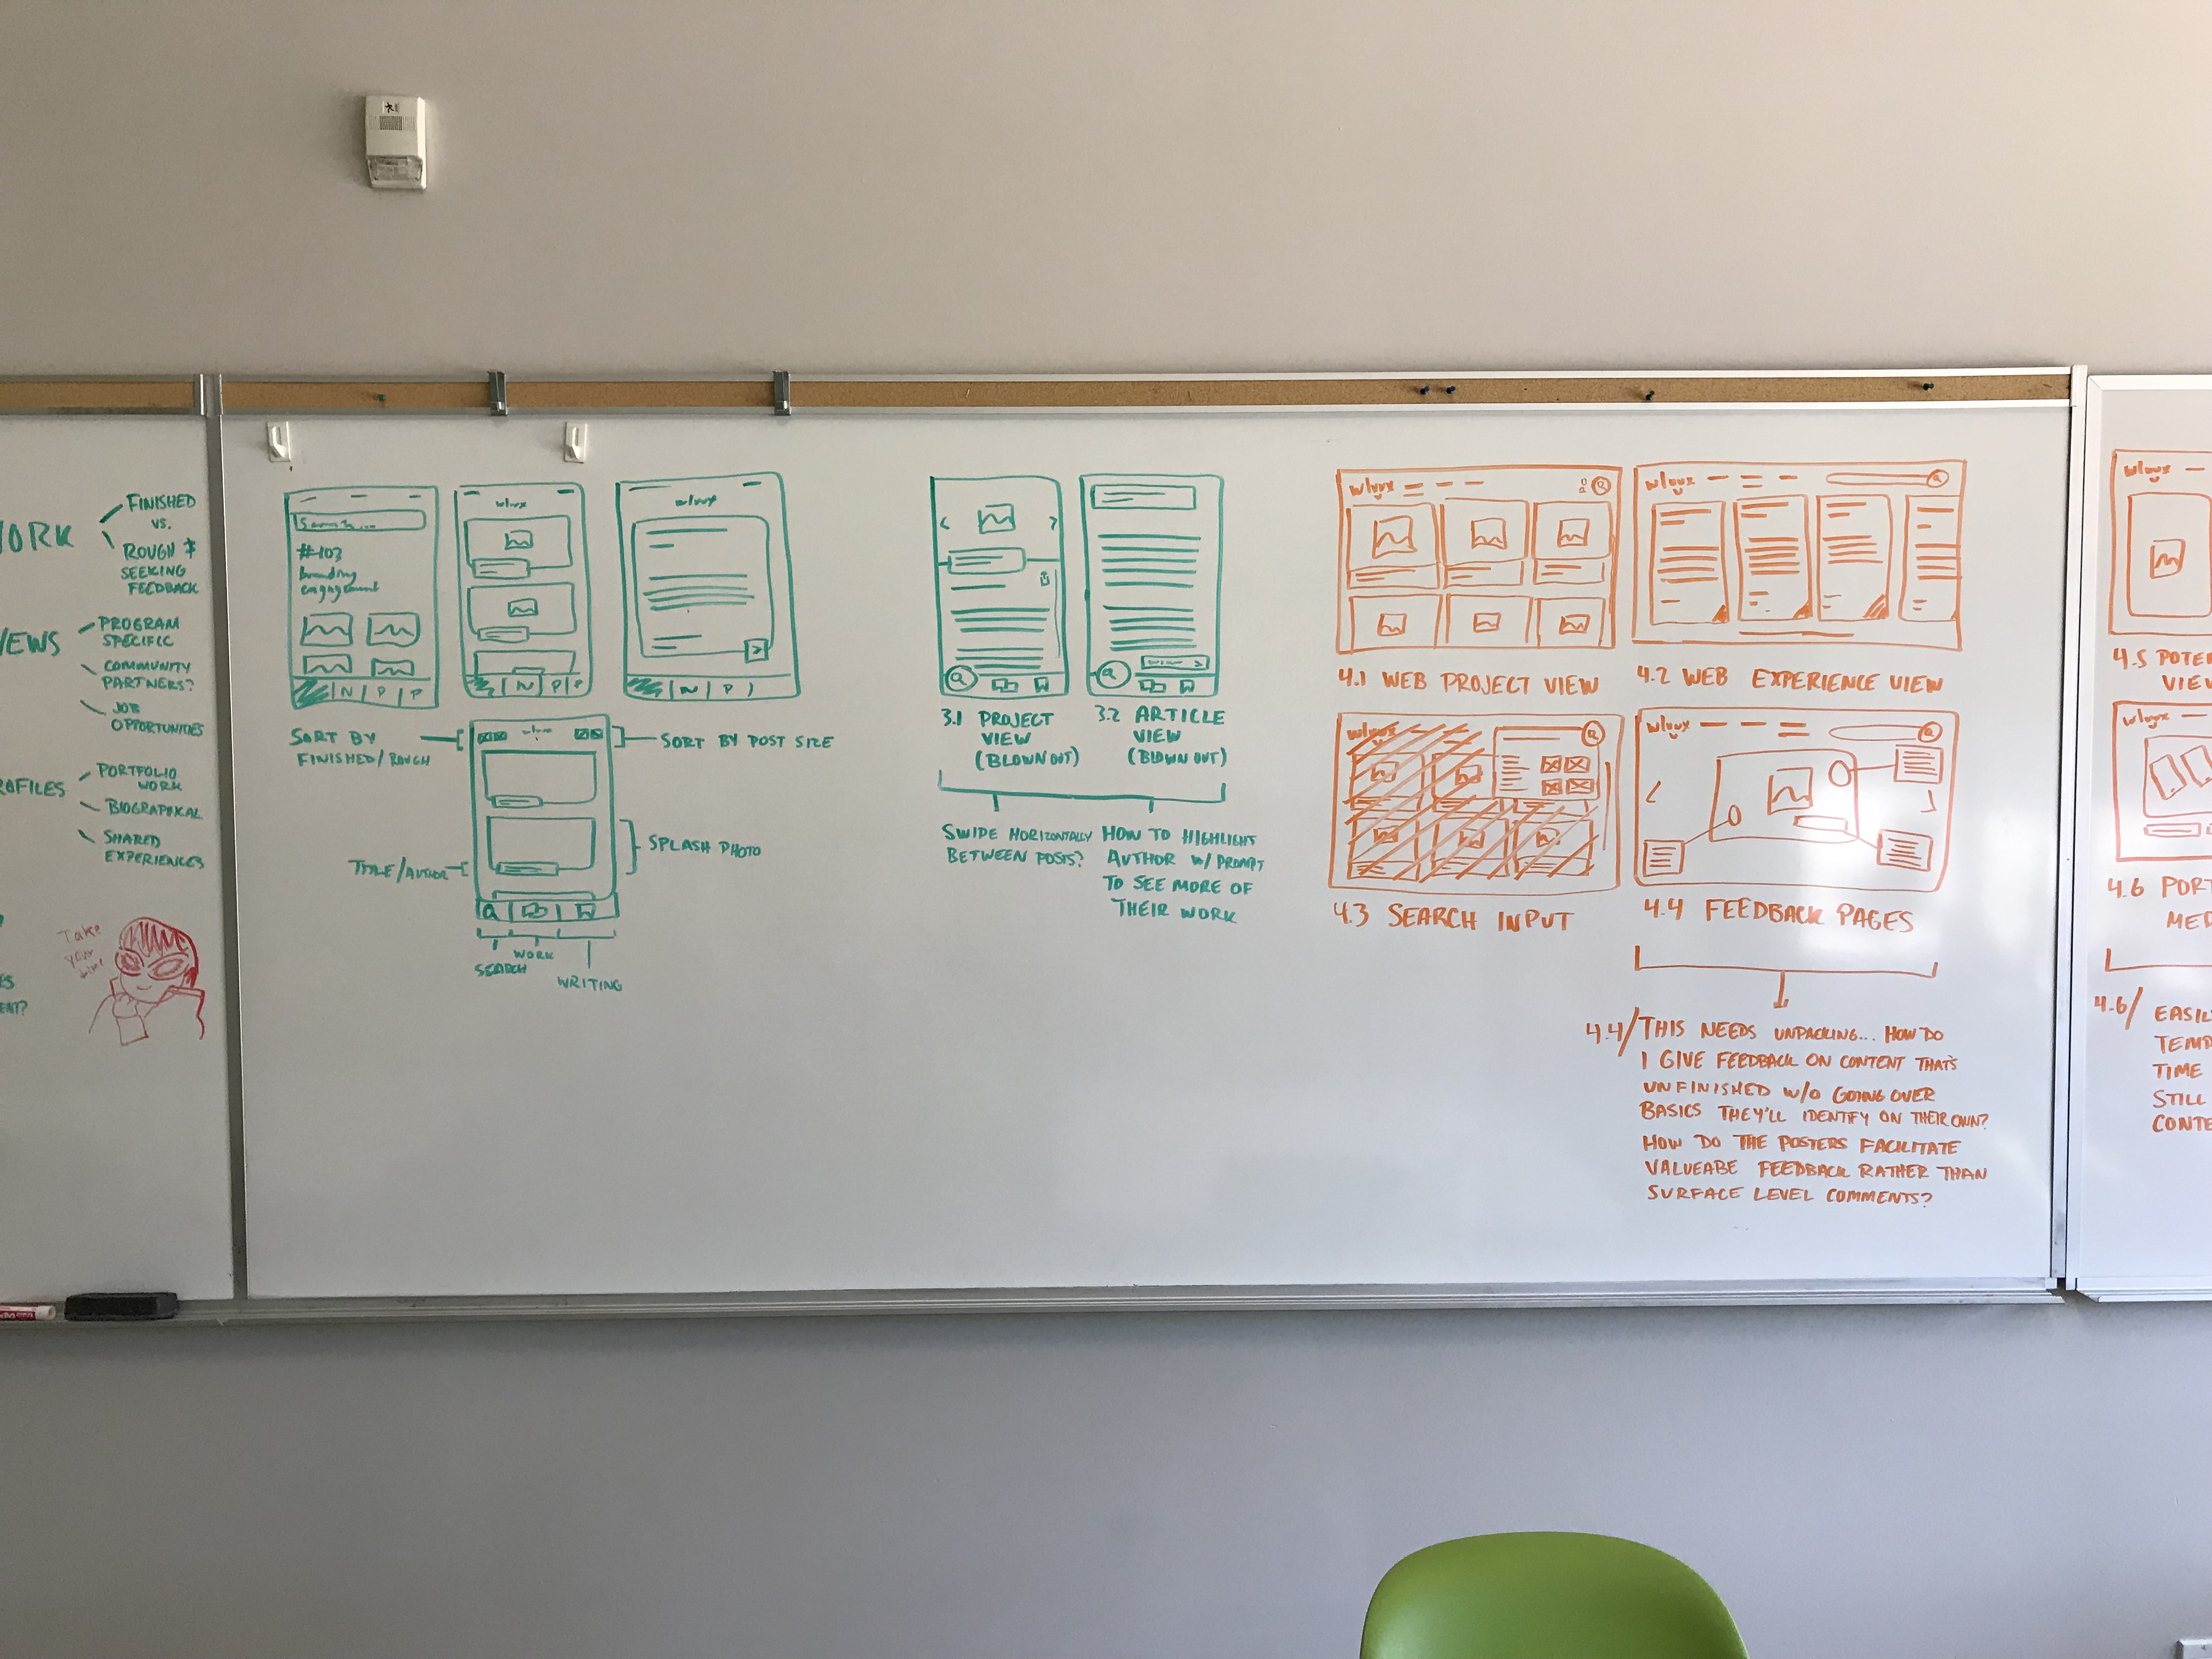 FINISHED
VS.
ROUGH &
SEEKING
FEEDBACK
PROGRAM
SPECIFIC
COMMUNITY
PARTNERS?
JOB
OPPORTUNITIES
PORTFOLIO
WORK
BIOGRAPHICAL
SHARED
EXPERIENCES
Take
your
time
Search...
#103
branding
engagement
N P P
wlvux
N P P
wlvux
N P
SORT BY
FINISHED/ROUGH
SORT BY POST SIZE
SPLASH PHOTO
TITLE/AUTHOR
SEARCH
WORK
WRITING
3.1 PROJECT
VIEW
(BLOWN OUT)
3.2 ARTICLE
VIEW
(BLOWN OUT)
SWIPE HORIZONTALLY
BETWEEN POSTS?
HOW TO HIGHLIGHT
AUTHOR W/ PROMPT
TO SEE MORE OF
THEIR WORK
wlvux
4.1 WEB PROJECT VIEW
wlvux
4.2 WEB EXPERIENCE VIEW
wlvux
4.3 SEARCH INPUT
wlvux
4.4 FEEDBACK PAGES
4.4/THIS NEEDS UNPACKING... HOW DO
I GIVE FEEDBACK ON CONTENT THAT'S
UNFINISHED W/O GOING OVER
BASICS THEY'LL IDENTIFY ON THEIR OWN?
HOW DO THE POSTERS FACILITATE
VALUEABE FEEDBACK RATHER THAN
SURFACE LEVEL COMMENTS?
wlvux
4.5 POTE
VIEW
wlvux
4.6 PORT
MED
4.6/ EASIL
TEMP
TIME
STILL
CONTE